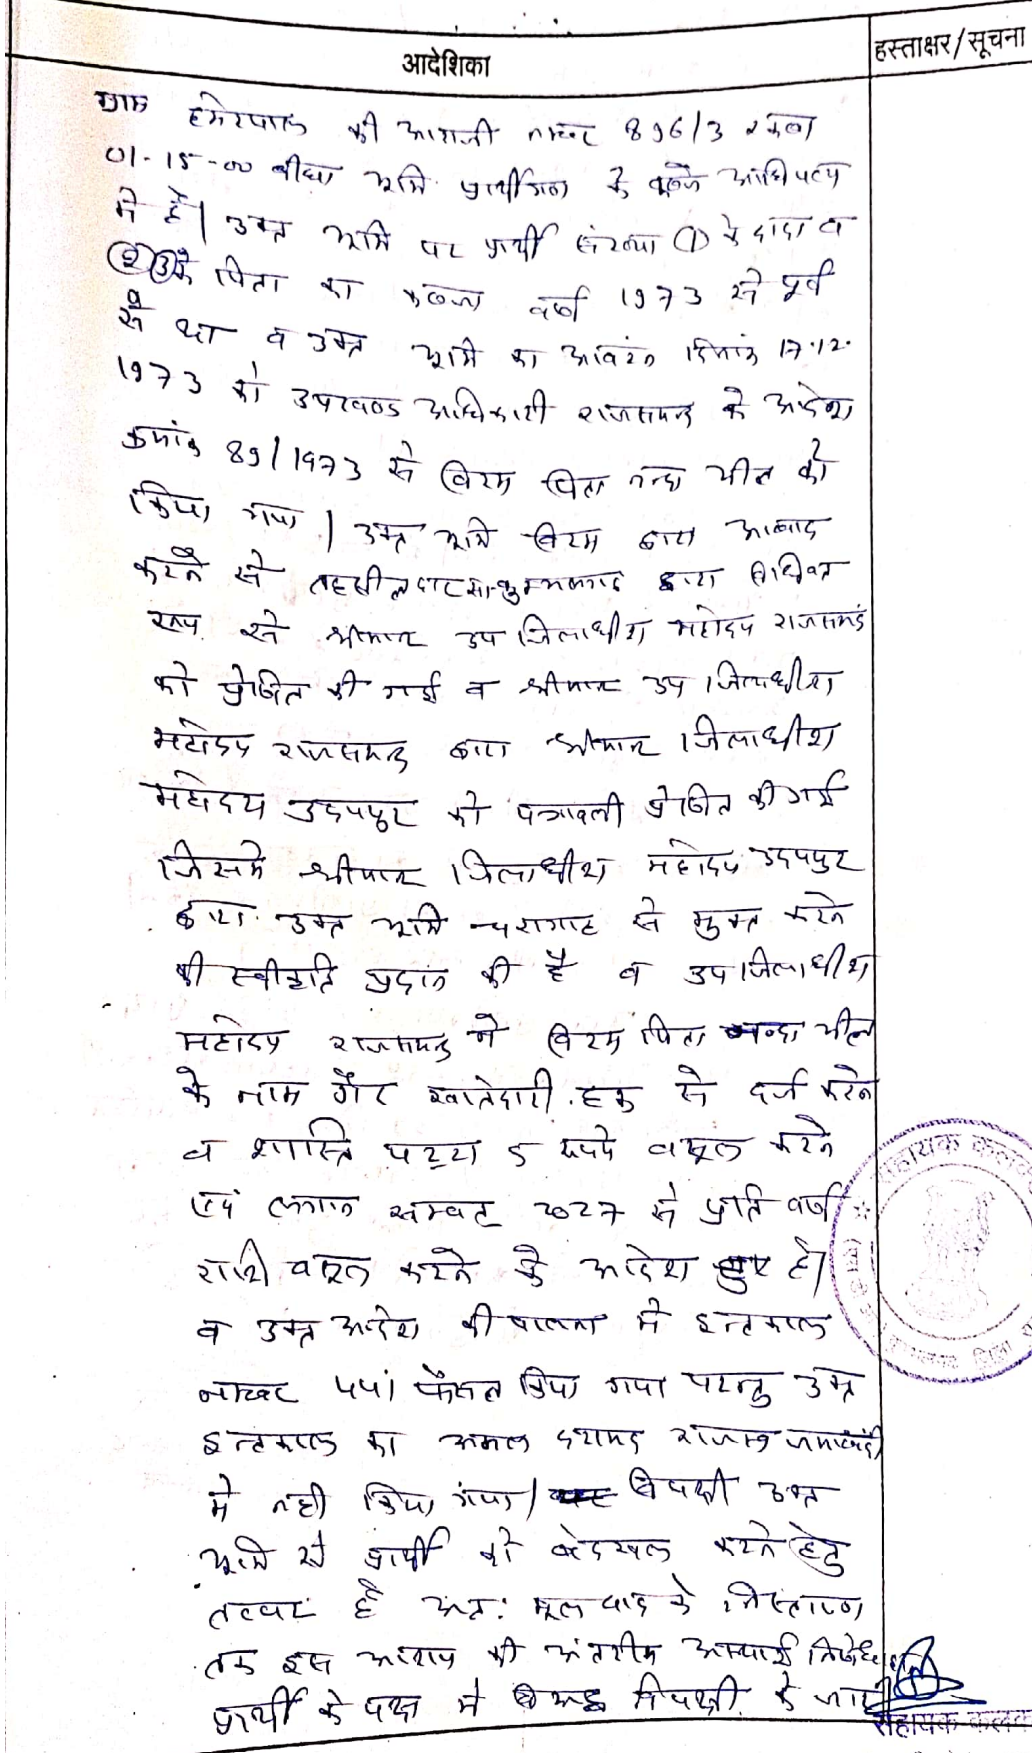 हस्ताक्षर/सूचना
आदेशिका
ग्राम हमेरपाल की आराजी नम्बर 896/3 रकबा
01-15-00 बीघा भूमि प्रार्थीगण के कब्जे आधिपत्य
में है। उक्त भूमि पर प्रार्थी संख्या (1) के दादा व
(2)(3) के पिता का कब्जा वर्ष 1973 से पूर्व
से था व उक्त भूमि का आवंटन दिनांक 17.12.
1973 को उपखण्ड अधिकारी राजसमन्द के आदेश
क्रमांक 89/1973 से पिता नन्दा भील को
किया गया। उक्त भूमि द्वारा आबाद
करने से तहसीलदार सा. कुम्भलगढ द्वारा विधिवत
रूप से श्रीमान उप जिलाधीश महोदय राजसमंद
को प्रेषित की गई व श्रीमान उप जिलाधीश
महोदय राजसमन्द द्वारा श्रीमान जिलाधीश
महोदय उदयपुर को पत्रावली प्रेषित की गई
जिसमें श्रीमान जिलाधीश महोदय उदयपुर
द्वारा उक्त भूमि चरागाह से मुक्त करने
की स्वीकृति प्रदान की है व उप जिलाधीश
महोदय राजसमन्द ने पिता नन्दा भील
के नाम गैर खातेदारी हक से दर्ज करने
व शास्ति 5 रूपये वसूल करने
एवं लगान सम्वत 2027 से प्रति वर्ष
राशि वसूल करने के आदेश हुए है।
व उक्त आदेश की पालना में इन्तकाल
नम्बर फैसल किया गया परन्तु उक्त
इन्तकाल का अमल दरामद राजस्व जमाबंदी
में नही किया गया। विपक्षी उक्त
भूमि से प्रार्थी को बेदखल करने हेतु
तत्पर है अतः मूल वाद के निस्तारण
तक इस आशय की अंतरीम अस्थाई निषेधाज्ञा
प्रार्थी के पक्ष में विपक्षी के जारी
सहायक कलक
सहायक कलक